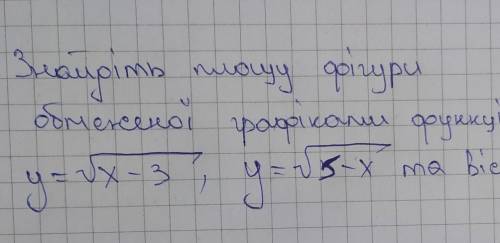 Знайдіть площу фігури
обмеженої графіками функції
y = √x - 3 , y = √5 - x та віс